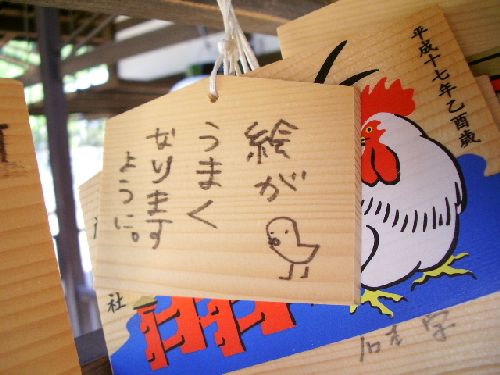 絵が
うまく
なります
ように。
平成十七年乙酉歳
社